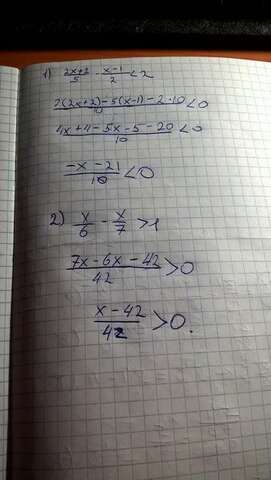 1) (2x+2)/5 - (x-1)/2 < 2
(2(2x+2)-5(x-1)-2·10)/10 < 0
(4x+4-5x-5-20)/10 < 0
(-x-21)/10 < 0
2) x/6 - x/7 > 1
(7x-6x-42)/42 > 0
(x-42)/42 > 0.